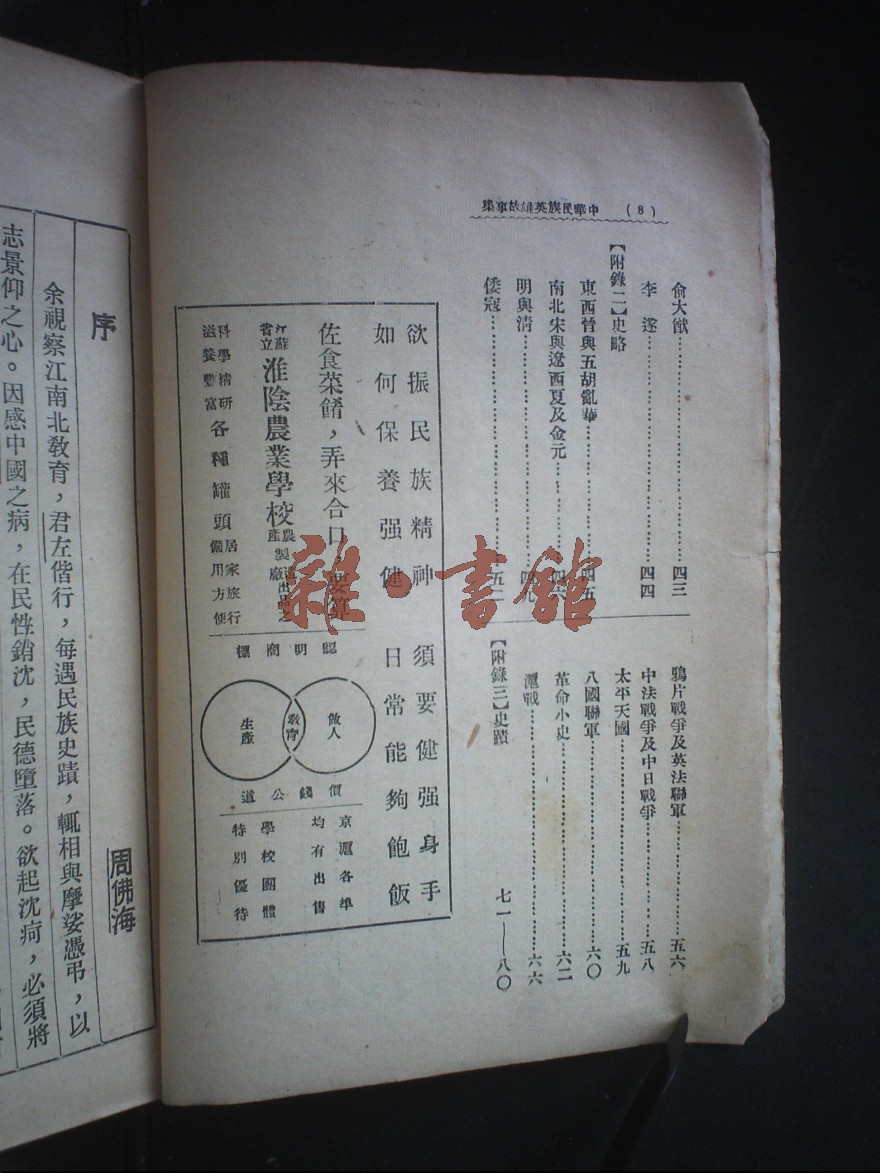 中華民族英雄故事集 (8)
俞大猷……四三
李遂……四四
【附錄二】史略
東西晉與五胡亂華……四五
南北宋與遼西夏及金元……四六
明與清……四九
倭寇……五二
鴉片戰爭及英法聯軍……五六
中法戰爭及中日戰爭……五八
太平天國……五九
八國聯軍……六〇
革命小史……六二
滬戰……六六
【附錄三】史蹟 七一——八〇
欲振民族精神 須要健强身手
如何保養强健 日常能夠飽飯
佐食菜餚,弄來合口 要算
江蘇省立 淮陰農業學校 農產製造廠出品之
科學精研 滋養豐富 各種罐頭 居家旅行 備用方便
認明商標
做人 教育 生產
價錢公道
京滬各埠
均有出售
學校團體
特別優待
雜·書館
序
周佛海
余視察江南北教育,君左偕行,每遇民族史蹟,輒相與摩娑憑弔,以
志景仰之心。因感中國之病,在民性銷沈,民德墮落。欲起沈疴,必須將